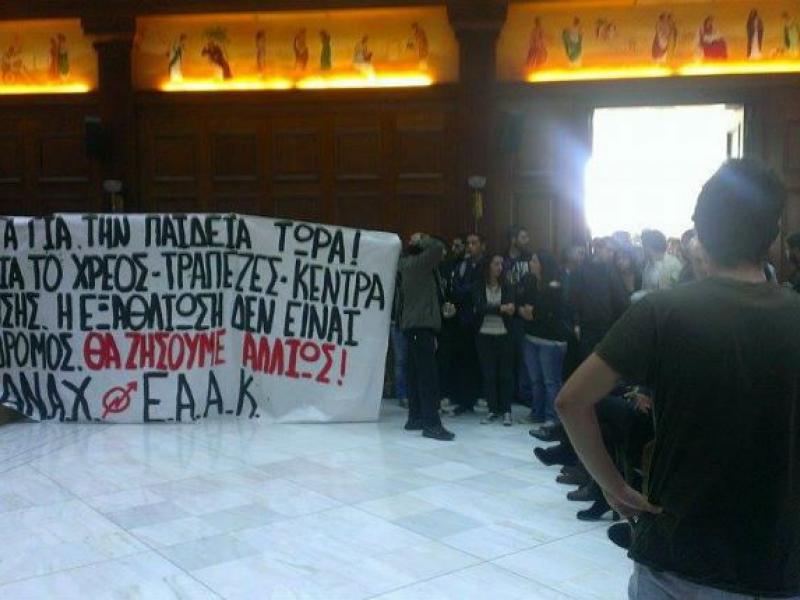 ΓΙΑ ΤΗΝ ΠΑΙΔΕΙΑ ΤΩΡΑ!
ΤΟ ΧΡΕΟΣ-ΤΡΑΠΕΖΕΣ-ΚΕΝΤΡΑ
Η ΕΞΑΘΛΙΩΣΗ ΔΕΝ ΕΙΝΑΙ
ΘΑ ΖΗΣΟΥΜΕ ΑΛΛΙΩΣ!
Ε.Α.Α.Κ.